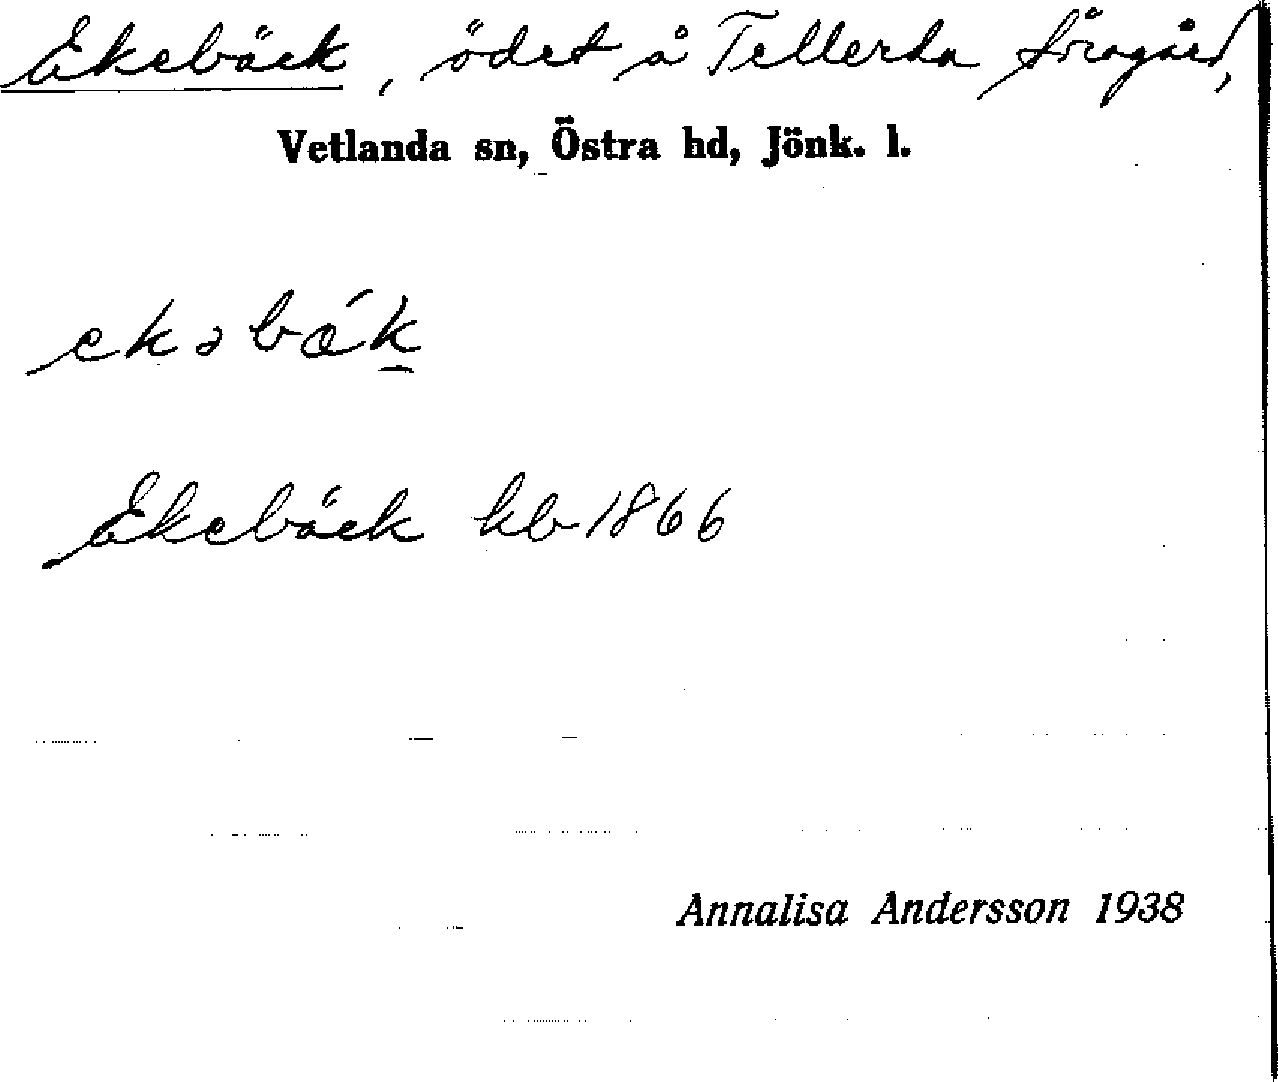 Ekebäck, ödet å Tellerda
Vetlanda sn, Östra hd, Jönk. l.
ekəbák
Ekebäck kb 1866
Annalisa Andersson 1938